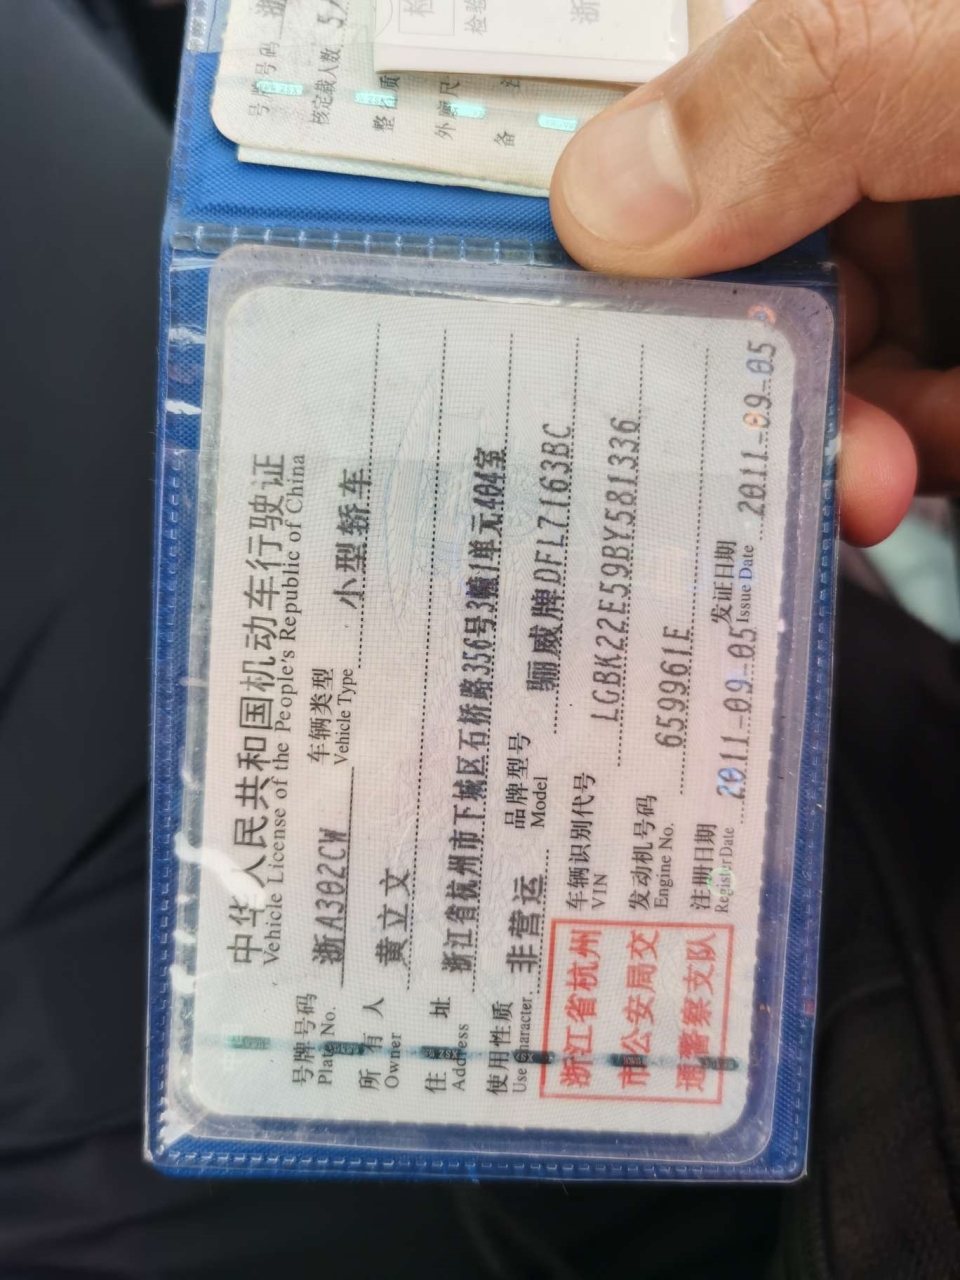 中华人民共和国机动车行驶证
Vehicle License of the People's Republic of China
号牌号码 浙A302CW 车辆类型 小型轿车
Plate No. Vehicle Type
所有人 黄立文
Owner
住址 浙江省杭州市下城区石桥路356号3幢1单元404室
Address
使用性质 非营运 品牌型号 骊威牌DFL7163BC
Use Character Model
浙江省杭州
市公安局交
通警察支队
车辆识别代号 LGBK22E59BY581336
VIN
发动机号码 659961E
Engine No.
注册日期 2011-09-05 发证日期 2011-09-05
Register Date Issue Date
号牌号码 浙
核定载人数 5人
整备质
外廓尺
备注
检
检验
浙